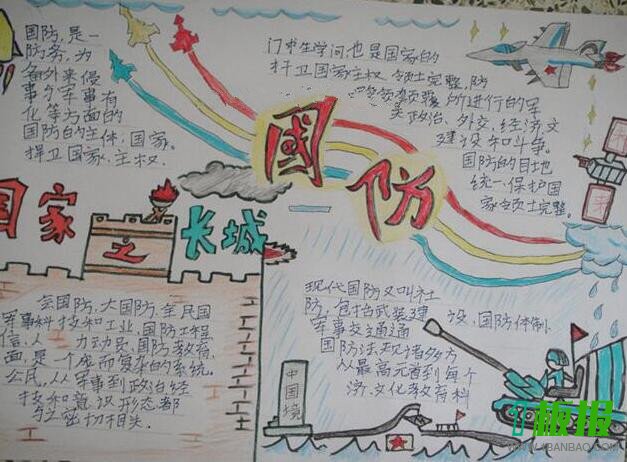 国防,是一
防务,为
备外来侵
事分军事有
化等方面的
国防的主体,国家。
捍卫国家、主权.
门求生学问,也是国家的
捍卫国家主权 领土完整,防
所进行的军
政治、外交、经济文
建设和斗争。
国防的目地
统一保护国
家领土完整。
國防
国家之长城
全国防,大国防,全民国
军事科技和工业,国防工程
信,人 力动员,国防教育,
面,是一个庞而复杂的系统。
公民,从军事到政治经
技和意识形态都
与之密切相关.
现代国防又叫社
防,包括武装建 设,国防体制
军事交通通
国防法规诸多方
从最高元首到每个
济、文化教育科
中国境
板报
WWW.1BANBAO.COM